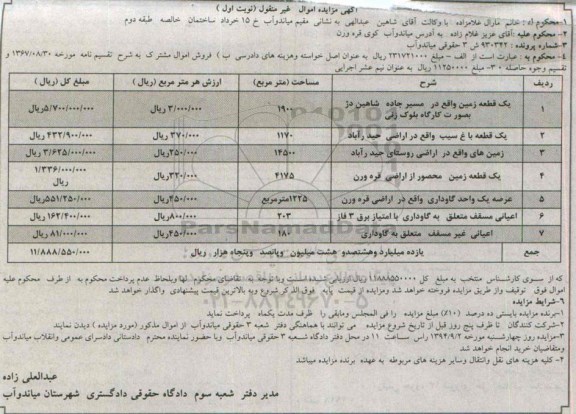 آگهی مزایده اموال غیر منقول (نوبت اول)
۱-محکوم له : خانم مارال غلامزاده با وکالت آقای شاهین عبدالهی به نشانی مقیم میاندوآب خ ۱۵ خرداد ساختمان خالصه طبقه دوم
۲- محکوم علیه :آقای عزیز غلام زاده به آدرس میاندوآب کوی قره ورن
۳-شماره پرونده : ۹۳۰۳۴۲ ش ۳ حقوقی میاندوآب
۴- محکوم به : عبارت است از الف - مبلغ ۲۳۱۷۲۱۰۰۰ ریال به عنوان اصل خواسته وهزینه های دادرسی ب ) فروش اموال مشترک به شرح تقسیم نامه مورخه ۱۳۶۷/۰۸/۳۰ و
تقسیم وجوه حاصله ۳۰- مبلغ ۱۱۲۵۰۰۰۰ ریال به عنوان نیم عشر اجرایی
ردیف شرح مساحت (متر مربع) ارزش هر متر مربع (ریال) مبلغ کل (ریال)
۱ یک قطعه زمین واقع در مسیر جاده شاهین دژ بصورت کارگاه بلوک زنی ۱۹۰۰ ۳/۰۰۰/۰۰۰ریال ۵/۷۰۰/۰۰۰/۰۰۰ریال
۲ یک قطعه باغ سیب واقع در اراضی حیدرآباد ۱۱۷۰ ۳۷۰/۰۰۰ریال ۴۳۲/۹۰۰/۰۰۰ ریال
۳ زمین های واقع در اراضی روستای حیدرآباد ۱۴۵۰۰ ۲۵۰/۰۰۰ریال ۳/۶۲۵/۰۰۰/۰۰۰ ریال
۴ یک قطعه زمین محصور از اراضی قره ورن ۴۱۷۵ ۳۲۰/۰۰۰ریال ۱/۳۳۶/۰۰۰/۰۰۰ ریال
۵ عرصه یک واحد گاوداری واقع در اراضی قره ورن ۱۲۲۵مترمربع ۴۵۰/۰۰۰ریال ۵۵۱/۲۵۰/۰۰۰ریال
۶ اعیانی مسقف متعلق به گاوداری با امتیاز برق ۳ فاز ۲۰۳ ۸۰۰/۰۰۰ریال ۱۶۲/۴۰۰/۰۰۰ ریال
۷ اعیانی غیر مسقف متعلق به گاوداری ۱۸۰ ۴۵۰/۰۰۰ریال ۸۱/۰۰۰/۰۰۰ ریال
جمع یازده میلیارد وهشتصدو هشت میلیون وپانصد وپنجاه هزار ریال ۱۱/۸۸۸/۵۵۰/۰۰۰
که از سوی کارشناس منتخب به مبلغ کل ۱۱۸۸۸۵۵۰۰۰۰ ریال ارزیابی شده است وبا توجه به تقاضای محکوم لها وبلحاظ عدم پرداخت محکوم به از طرف محکوم علیه
اموال فوق توقیف واز طریق مزایده فروخته خواهد شد ومزایده از قیمت پایه فوق الذکر شروع وبه بالاترین قیمت پیشنهادی واگذار خواهد شد
۶-شرایط مزایده
۱-برنده مزایده بایستی ده درصد (۱۰٪) مبلغ مزایده را فی المجلس ومابقی را ظرف مدت یکماه پرداخت نماید
۲-شرکت کنندگان تا ظرف پنج روز قبل از تاریخ شروع مزایده می توانند با هماهنگی دفتر شعبه ۳ حقوقی میاندوآب از اموال مذکور (مورد مزایده ) دیدن نمایند
۳-مزایده روز چهارشنبه مورخه ۱۳۹۴/۹/۲ راس ساعت ۱۱ در محل دفتر دادگاه شعبه ۳ حقوقی میاندوآب وبا حضور نماینده محترم دادستانی دادسرای عمومی وانقلاب میاندوآب
ومتقاضیان خرید انجام خواهد شد
۲- کلیه هزینه های نقل وانتقال وسایر هزینه های مربوطه به عهده برنده مزایده میباشد
عبدالعلی زاده
مدیر دفتر شعبه سوم دادگاه حقوقی دادگستری شهرستان میاندوآب
ParsNamadData
۰۲۱-۸۸۳۴۹۶۷۰-۵